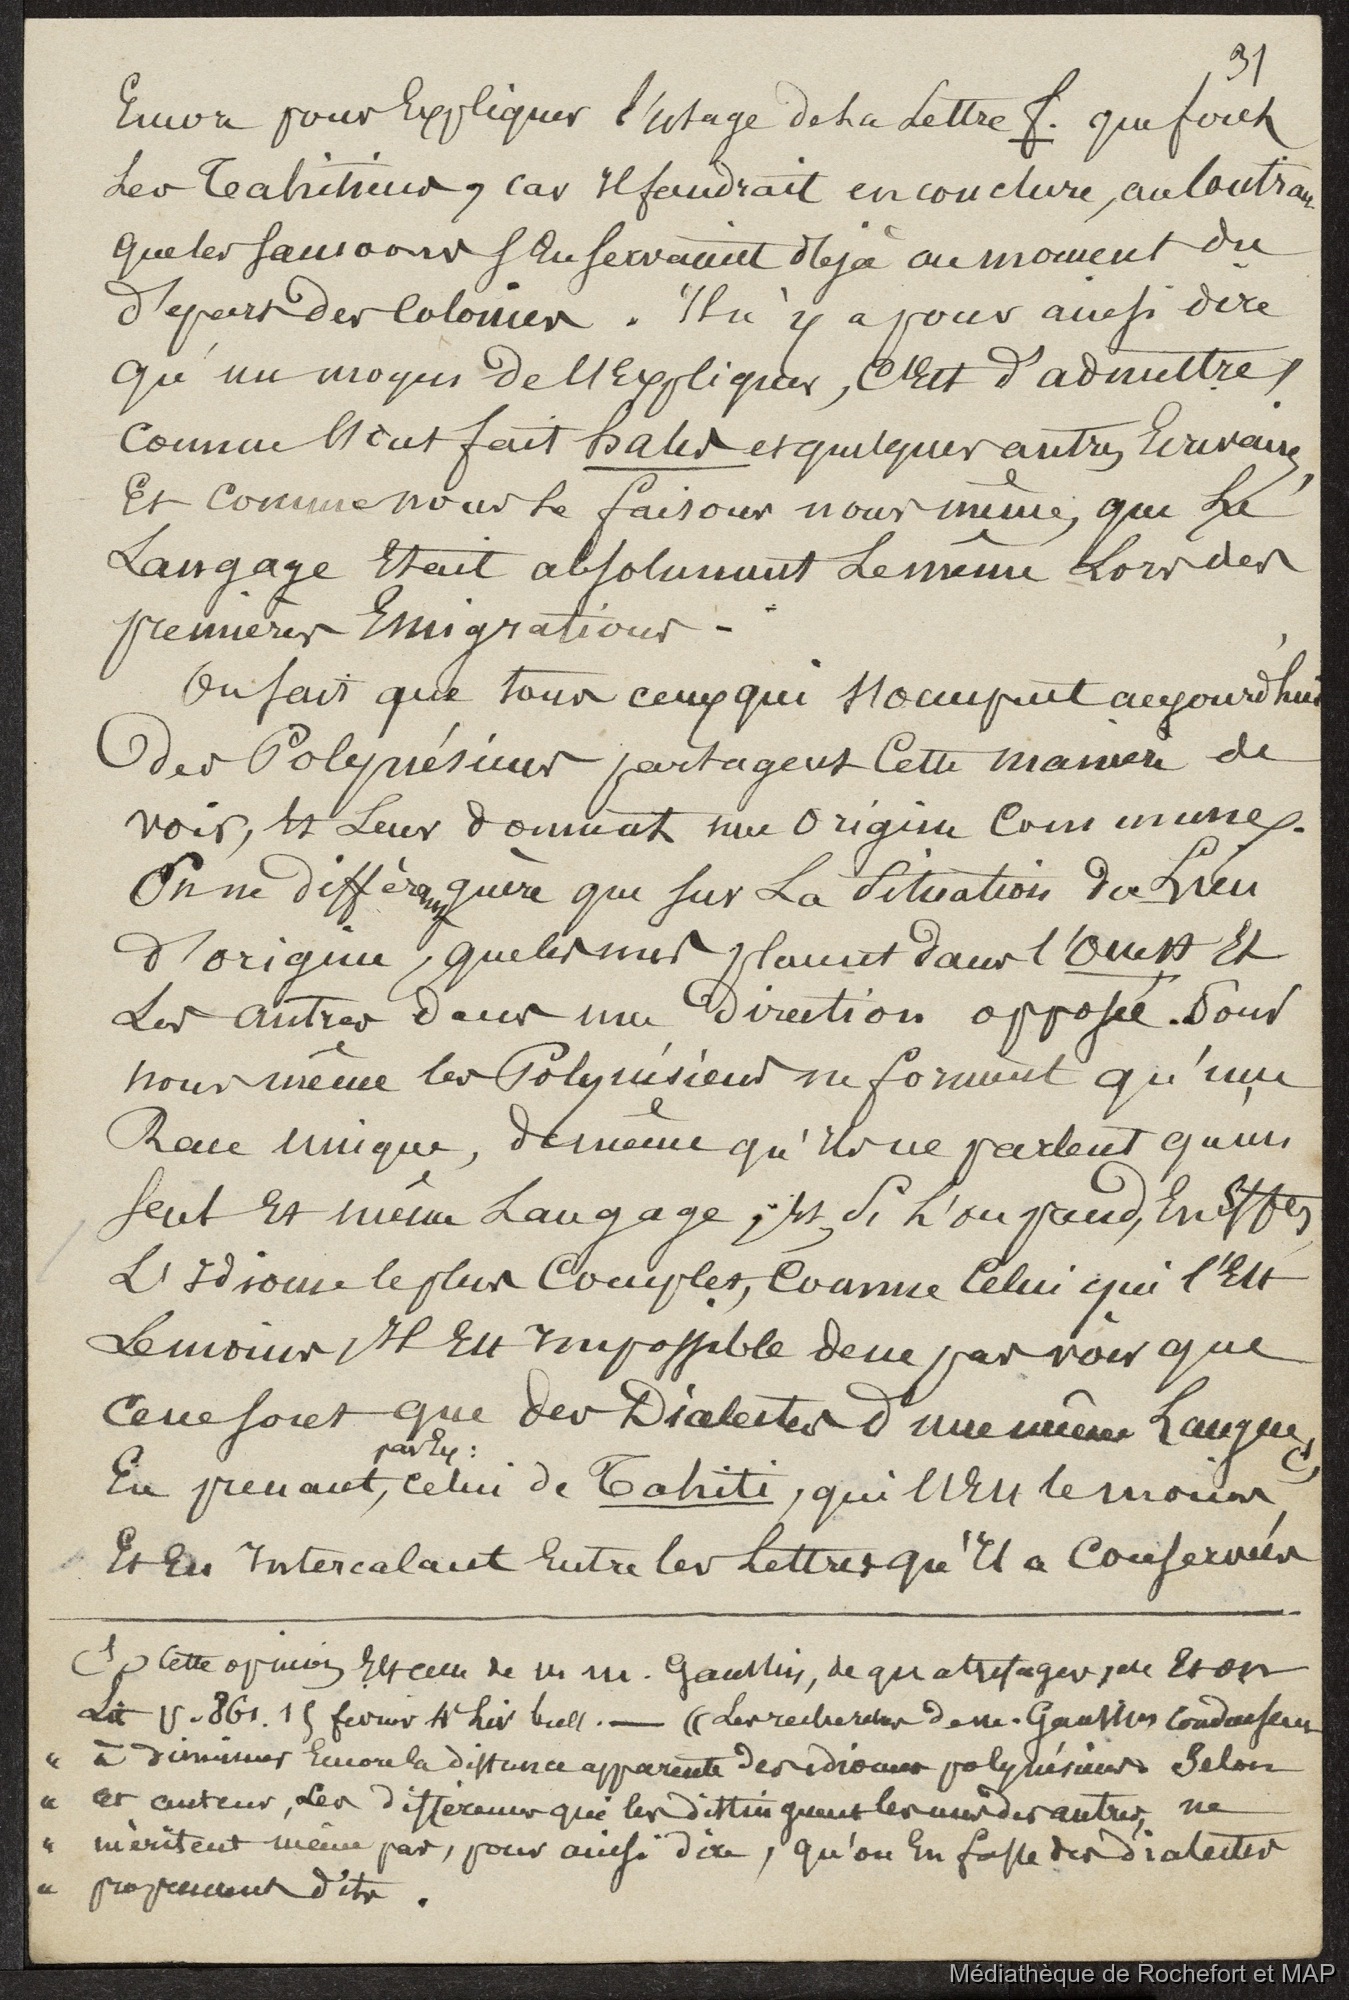 31
Encore pour Expliquer l'usage de la Lettre f. que font
Les Tahitiens, car il faudrait en conclure, au Contraire
que les Samoans s'en servaient déjà au moment du
départ des Colonies. Il n'y a pour ainsi dire
qu'un moyen de l'Expliquer, c'est d'admettre,
comme l'ont fait hales et quelques autres Ecrivains,
Et comme nous le faisons nous même, que Le
Langage Etait absolument Le même Lors des
premières Emigrations -
On sait que tous ceux qui s'occupent aujourd'hui
des Polynésiens partagent Cette manière de
voir, et Leur donnent une origine Commune.
On ne diffère guère que sur La Situation du Lieu
d'origine, que les uns placent dans l'Ouest Et
Les autres dans une direction opposée. Pour
nous même les Polynésiens ne forment qu'une
Race unique, de même qu'ils ne parlent qu'un
seul Et même Langage; Et, Si L'on prend, En effet,
L'Idiome le plus Complet, Comme Celui qui l'Est
Le moins, Il Est Impossible de ne pas voir que
ce ne sont que des Dialectes d'une même Langue (1)
par Ex:
En prenant, celui de Tahiti, qui l'Est le moins,
Et En Intercalant Entre les Lettres qu'Il a Conservées
(1) Cette opinion Est celle de m m. Gaussin, de quatrefages, et on
Lit p. 861. 15 février — (( Les recherches de m. Gaussin conduisent
" à diminuer Encore la distance apparente des idiomes polynésiens. Selon
" cet auteur, Les différences qui les distinguent les uns des autres, ne
" méritent même pas, pour ainsi dire, qu'on En fasse des dialectes
" proprement dits.
Médiathèque de Rochefort et MAP